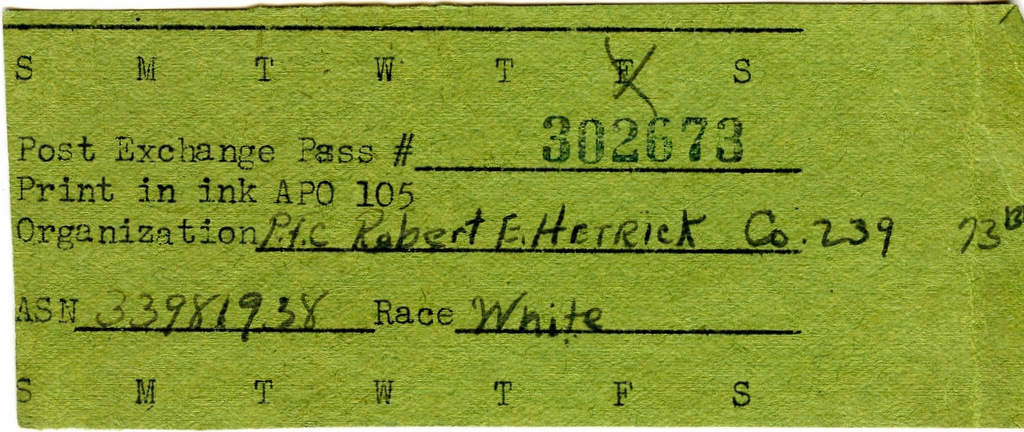 S M T W T F S
Post Exchange Pass # 302673
Print in ink APO 105
Organization Pf.c Robert E. Herrick Co. 239 73
ASN 33981938 Race White
S M T W T F S